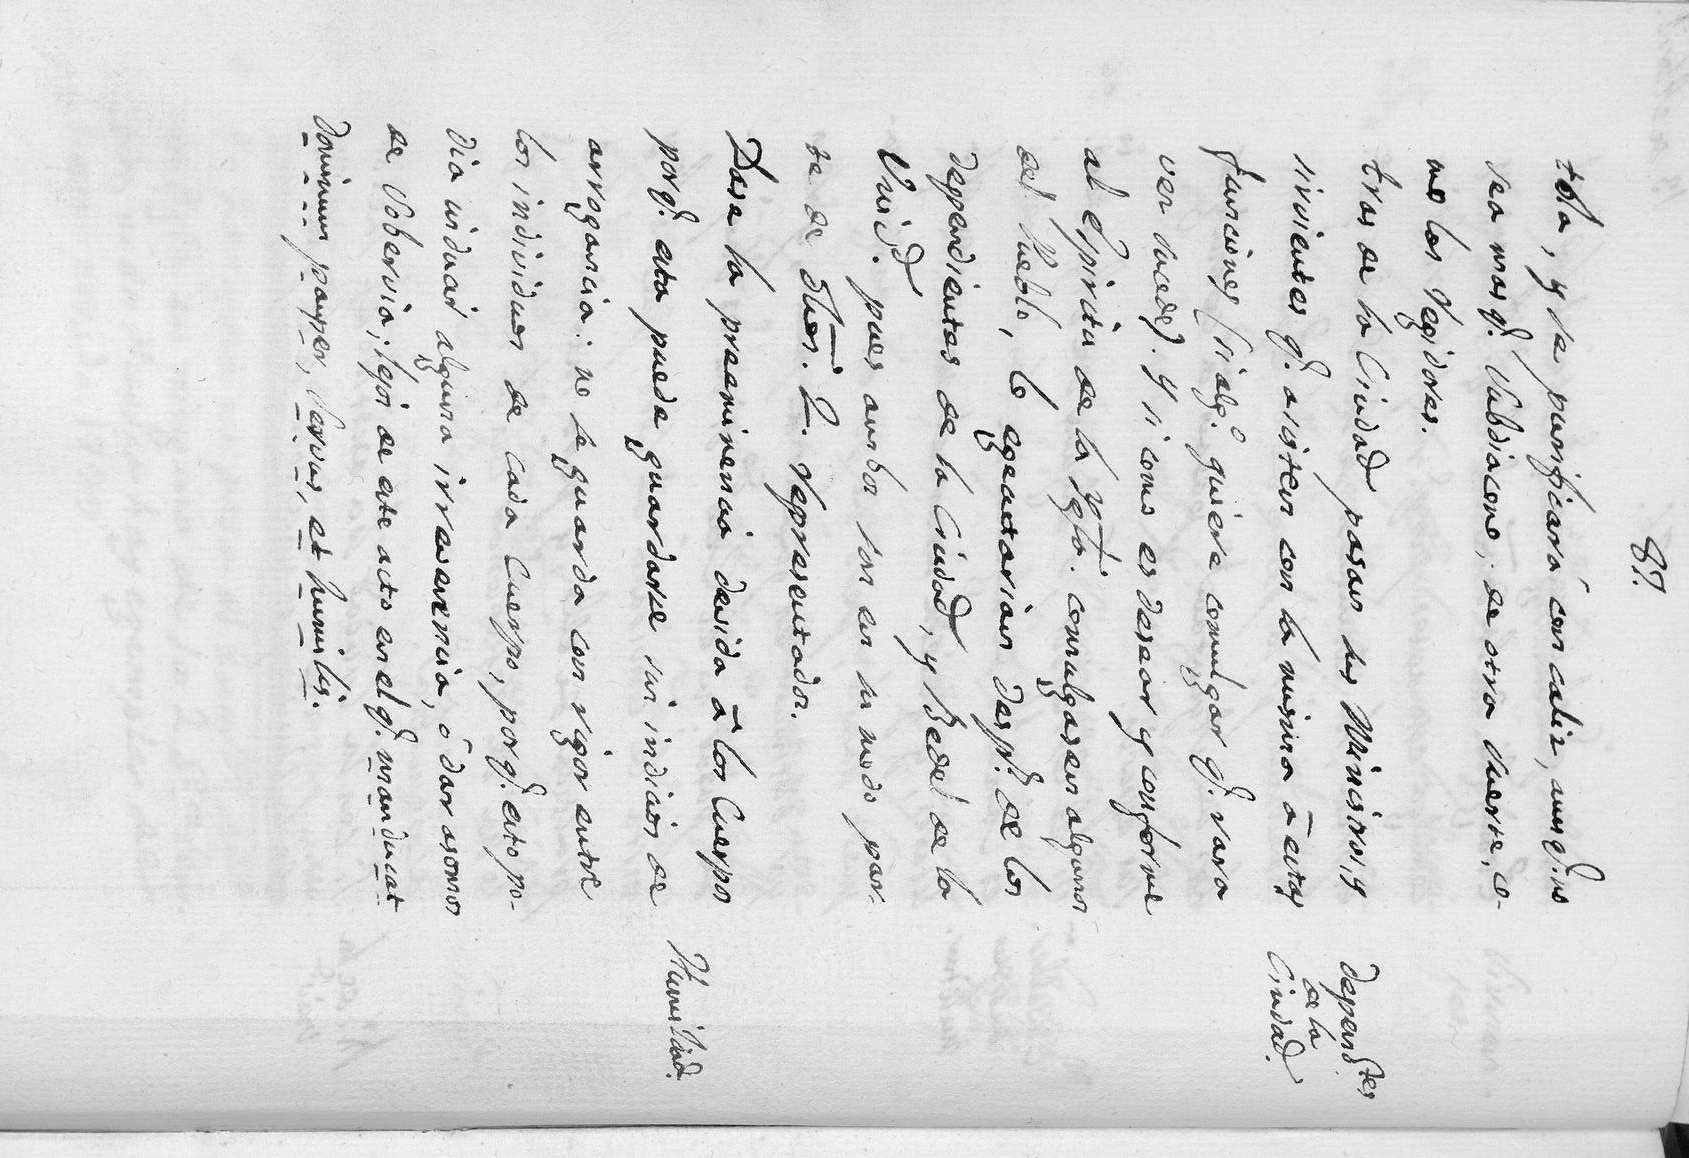 87.
tola, y se purificará con caliz, aunq.e no
sea mas q.e Subdiacono; de otra suerte, co-
mo los Regidores.
tras de la Ciudad pasan sus Ministros, y
sirvientes q.e asisten con la misma à estas
funciones (si alg.o quiere comulgar q.e rara
ver suced.e. y si como es desear y conforme
al espiritu de la Ygla. comulgasen algunos
del Pueblo, lo egecutarian desp.s de los
dependientes de la Ciudad, y Bedel de la
Univ.d pues ambos son en su modo par-
te de sus representados.
Dase la preeminencia devida à los Cuerpos
porq.e esta puede guardarse sin indicios de
arrogancia: no se guarda con rigor entre
los individuos de cada Cuerpo, porq.e esto po-
dia inducir alguna irreverencia, ó dar asomos
de sobervia; lejos de este acto en el q.e manducat
Dominum pauper, servus, et humilis.
Dependtes
de la
Ciudad.
Humildad.